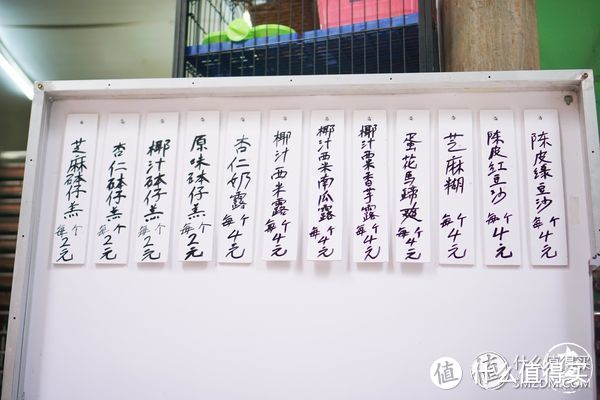 陈皮绿豆沙每个4元
陈皮紅豆沙每个4元
芝麻糊每个4元
蛋花馬蹄爽每个4元
椰汁栗香芋露每个4元
椰汁西米南瓜露每个4元
椰汁西米露每个4元
杏仁奶露每个4元
原味砵仔羔每个2元
椰汁砵仔羔每个2元
杏仁砵仔羔每个2元
芝麻砵仔羔每个2元
值 什么值得买
值 什么值得买
SMZDM.COM